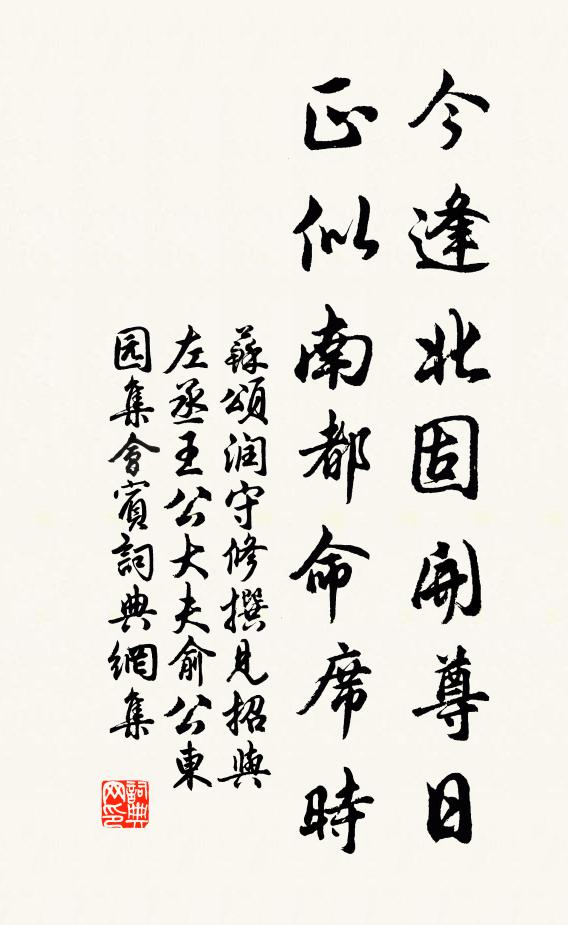 今逢北固開尊日
正似南都命席時
蘇頌润守修撰見招與
左丞王公大夫俞公東
园集會賓詞典網集
詞典
网印